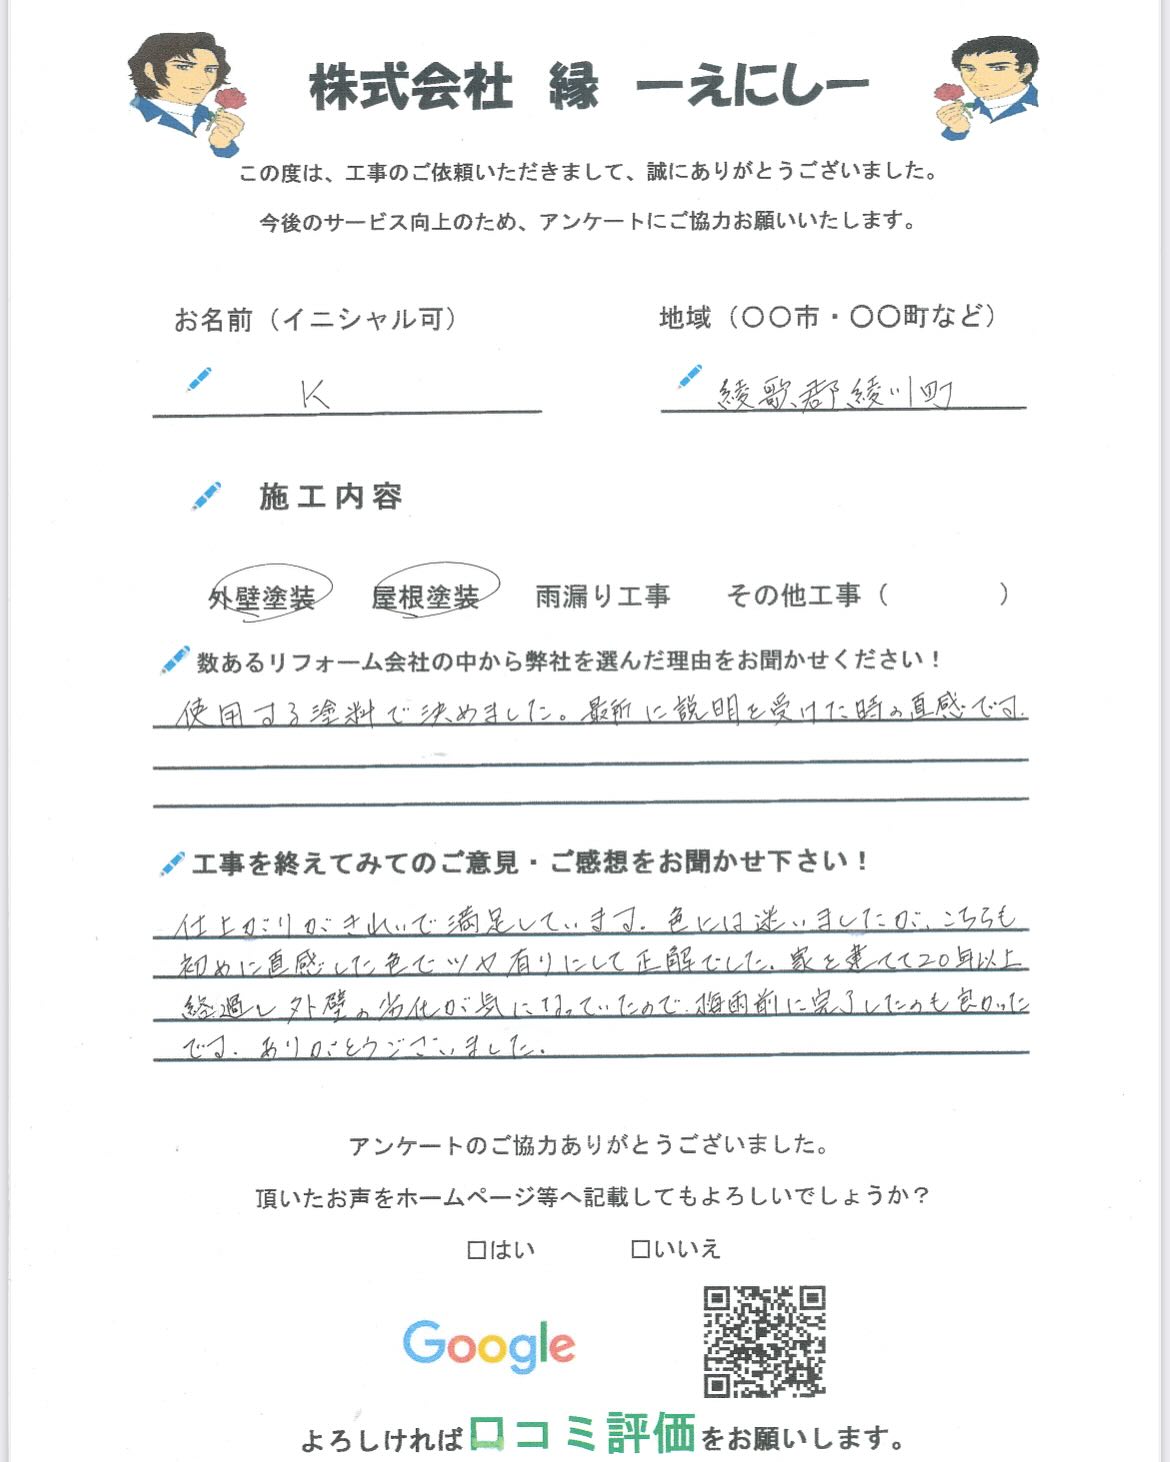 株式会社 縁 ーえにしー
この度は、工事のご依頼いただきまして、誠にありがとうございました。
今後のサービス向上のため、アンケートにご協力お願いいたします。
お名前（イニシャル可）
地域（〇〇市・〇〇町など）
K
綾歌郡綾川町
施工内容
外壁塗装 屋根塗装 雨漏り工事 その他工事（ ）
数あるリフォーム会社の中から弊社を選んだ理由をお聞かせください！
使用する塗料で決めました。最初に説明を受けた時の直感です.
工事を終えてみてのご意見・ご感想をお聞かせ下さい！
仕上がりがきれいで満足しています. 色には迷いましたが、こちらも
初めに直感した色でツヤ有りにして正解でした. 家を建てて20年以上
経過し外壁の劣化が気になっていたので、梅雨前に完了したのも良かった
です. ありがとうございました.
アンケートのご協力ありがとうございました。
頂いたお声をホームページ等へ記載してもよろしいでしょうか？
□はい □いいえ
Google
よろしければ口コミ評価をお願いします。